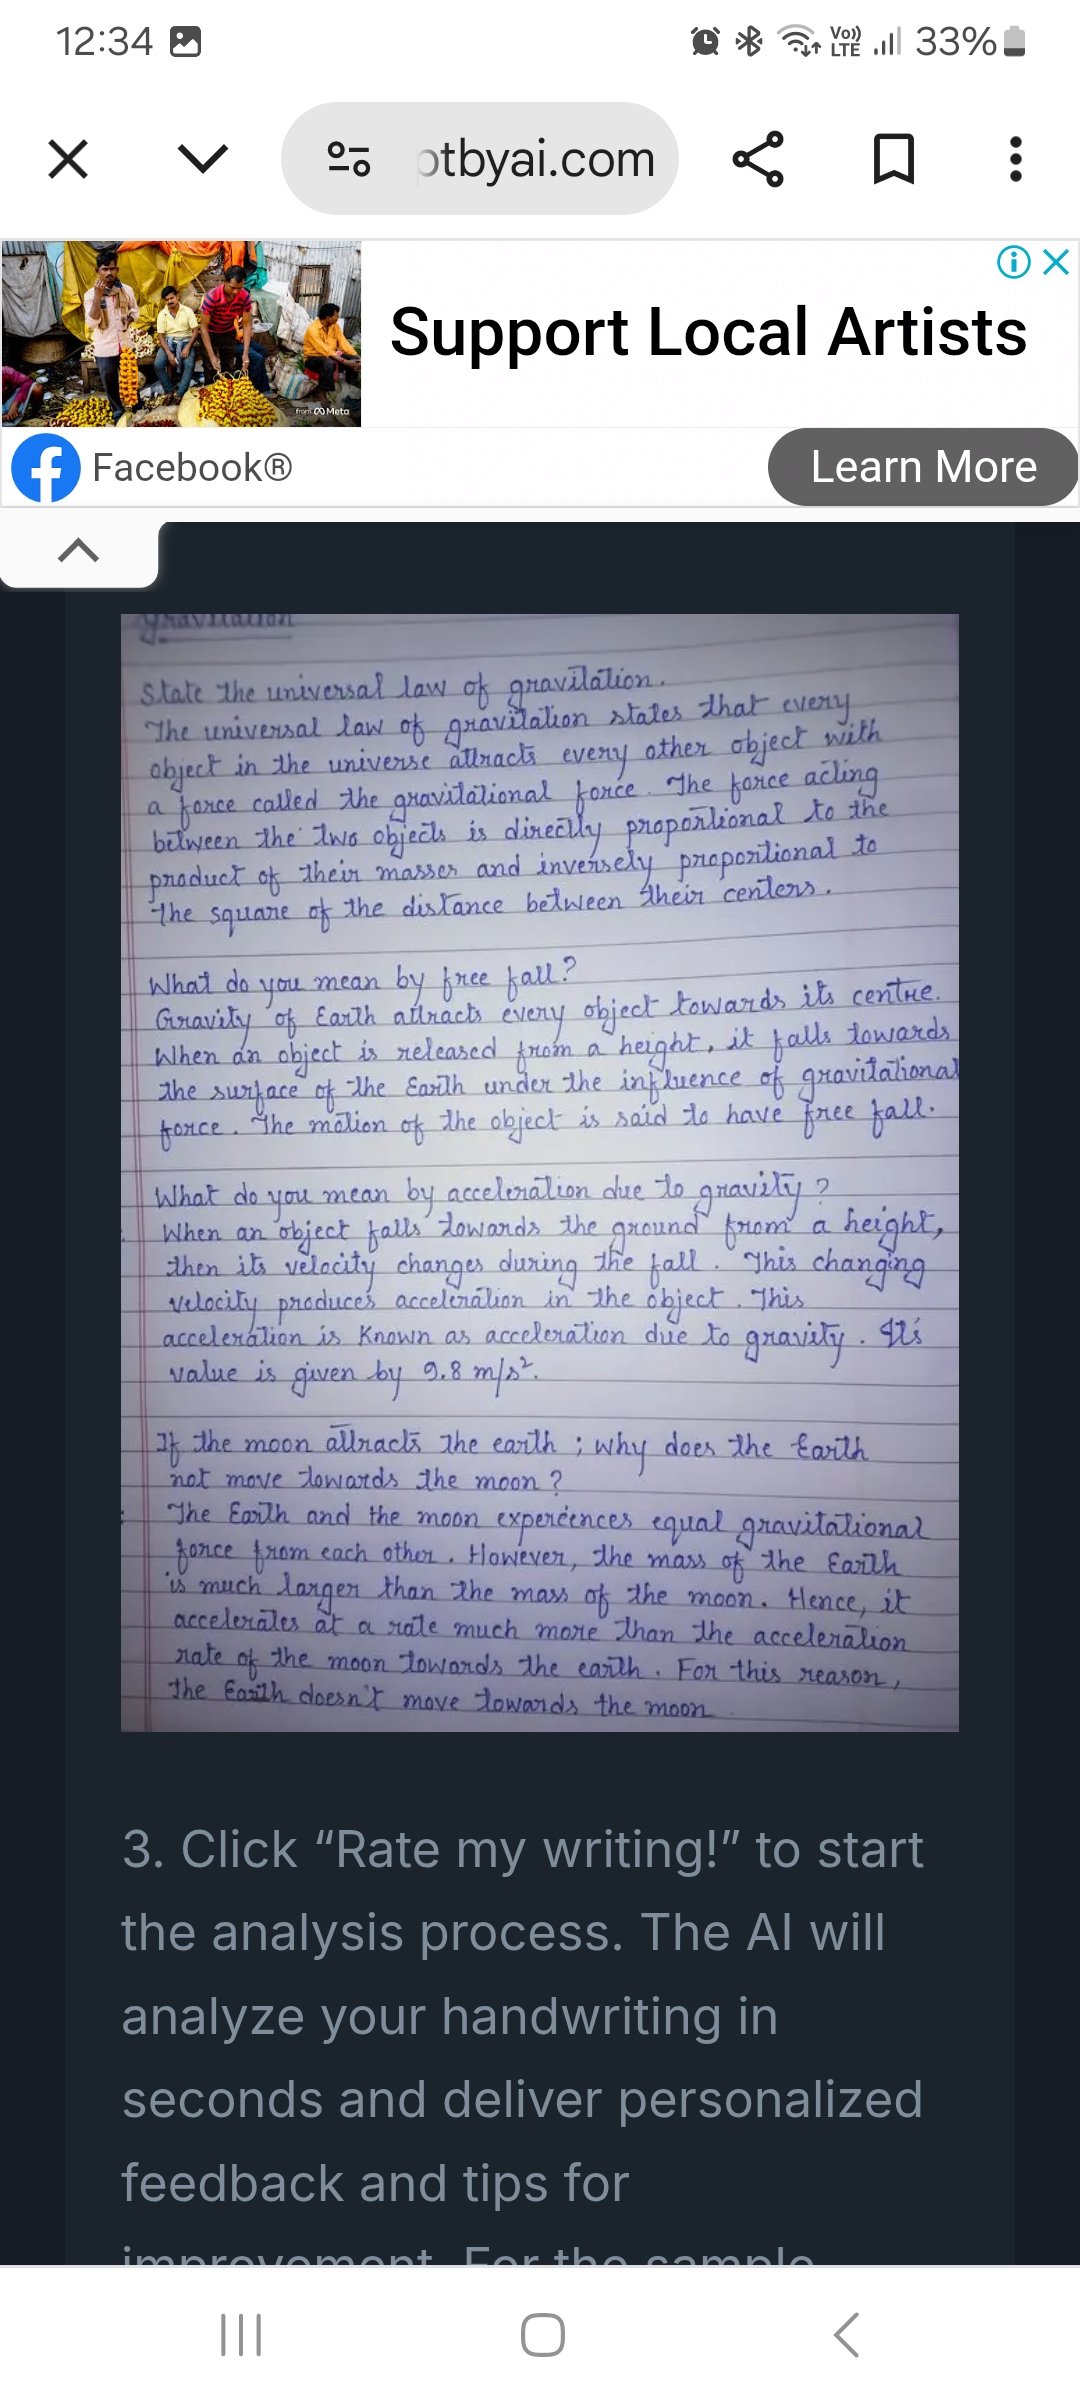 12:34
Vo)) LTE 33%
otbyai.com
Support Local Artists
from Meta
Facebook®
Learn More
Gravitation
State the universal law of gravitation.
The universal law of gravitation states that every
object in the universe attracts every other object with
a force called the gravitational force. The force acting
between the two objects is directly proportional to the
product of their masses and inversely proportional to
the square of the distance between their centers.
What do you mean by free fall?
Gravity of Earth attracts every object towards its centre.
When an object is released from a height, it falls towards
the surface of the Earth under the influence of gravitational
force. The motion of the object is said to have free fall.
What do you mean by acceleration due to gravity?
When an object falls towards the ground from a height,
then its velocity changes during the fall. This changing
velocity produces acceleration in the object. This
acceleration is Known as acceleration due to gravity. It's
value is given by 9.8 m/s².
If the moon attracts the earth; why does the Earth
not move towards the moon?
The Earth and the moon experiences equal gravitational
force from each other. However, the mass of the Earth
is much larger than the mass of the moon. Hence, it
accelerates at a rate much more than the acceleration
rate of the moon towards the earth. For this reason,
the Earth doesn't move towards the moon
3. Click “Rate my writing!” to start
the analysis process. The AI will
analyze your handwriting in
seconds and deliver personalized
feedback and tips for
improvement. For the sample